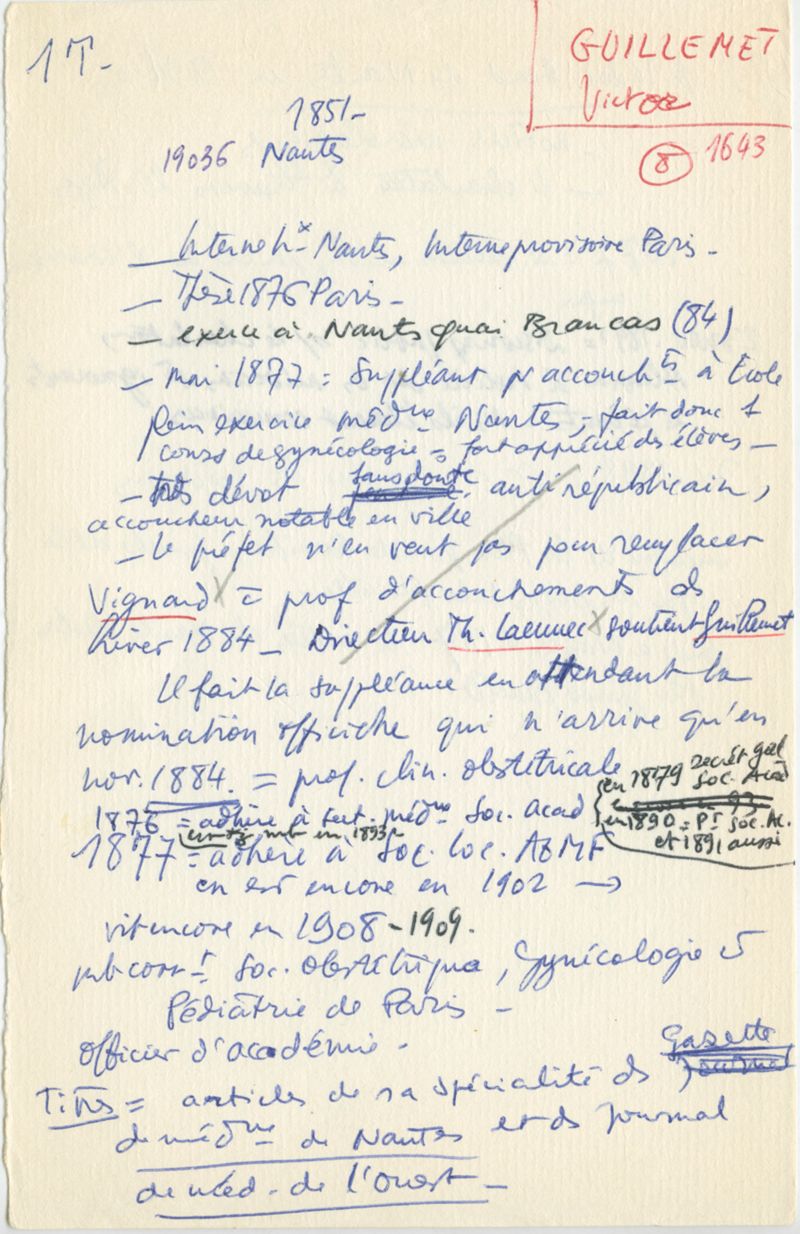 1T-
GUILLEMET
Victor
8 1643
1851-
19036 Nantes
— Interne hx Nantes, Interne provisoire Paris -
— Thèse 1876 Paris -
— exerce à Nantes quai Brancas (84)
— mai 1877 = Suppléant pr accouchts à Ecole
Plein exercice médne Nantes = fait donc 1
cours de gynécologie = fort apprécié des élèves —
— très dévot sans doute antirépublicain,
accoucheur notable en ville
— le préfet n'en veut pas pour remplacer
Vignard x = prof d'accouchements ds
hiver 1884 — Directeur Th. Laennec x soutient Guillemet
Il fait la suppléance en attendant la
nomination officielle qui n'arrive qu'en
nov. 1884. = prof. clin. obstétricale
1876 = adhère à sect. médne Soc. Acad
en 1879 secrét gal
Soc. Acad
en 1890 = Pt Soc. Ac.
et 1891 aussi
mb en 1893
1877 = adhère à Soc. loc. AGMF
en est encore en 1902 →
vit encore en 1908 - 1909.
mb corrt Soc. Obstétrique, Gynécologie et
Pédiatrie de Paris -
Officier d'académie -
Titres = articles de sa spécialité ds Gazette
de médne de Nantes et ds Journal
de méd. de l'Ouest —